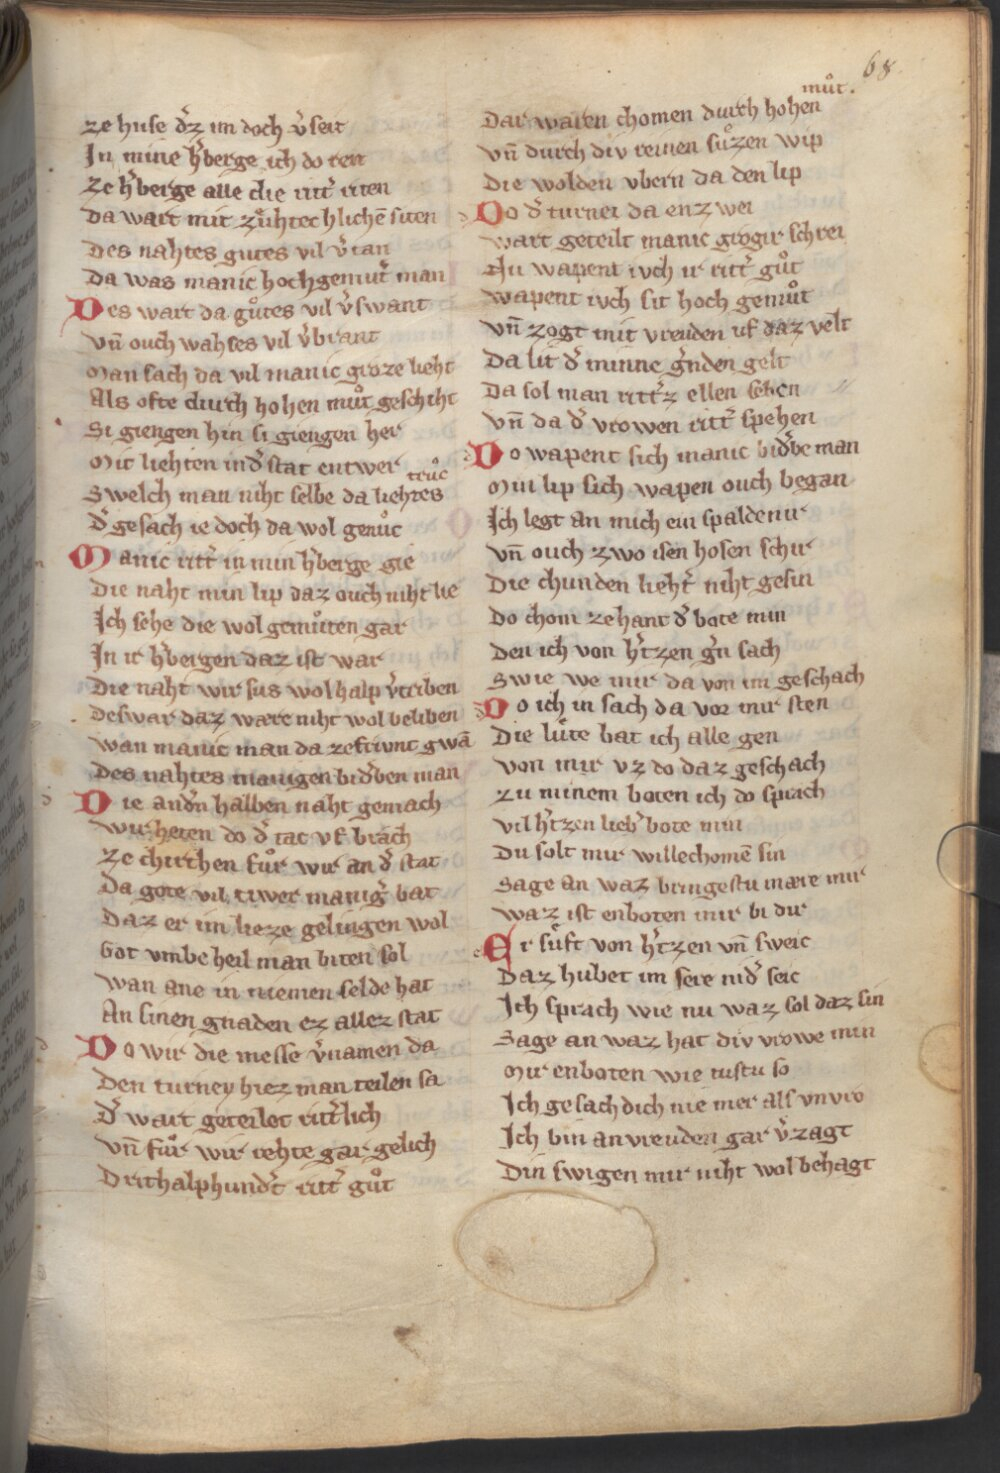 68
ze huse d̾z im doch v̾seit
In mine h̾berge ich do reit
Ze h̾berge alle die ritt̾ riten
Da wart mit zühtechlichē siten
Des nahtes gutes vil v̾tan
Da was manic hochgemut̾ man
Des wart da guͦtes vil v̾swant
vn̄ ouch wahses vil v̾brant
Man sach da vil manic groze lieht
Als ofte durch hohen muͦt geschiht
Si giengen hin si giengen her
Mit liehten in d̾ stat entwer
Swelch man niht selbe da liehtes truͦc
d̾ gesach ie doch da wol genuͦc
Manic ritt̾ in min h̾berge gie
Die naht min lip daz ouch niht lie
Ich sehe die wol gemuͦten gar
In ir h̾bergen daz ist war
Die naht wir sus wol halp v̾triben
Deswar daz ware niht wol beliben
wan manic man da zestivnt gwā
Des nahtes manigen bid̾ben man
Die and̾n halben naht gemach
wir heten do d̾ tac vf brach
Ze chirchen fuͦr wir an d̾ stat
Da gote vil tiwer manig̾ bat
Daz er im lieze gelingen wol
Got vmbe heil man biten sol
wan ane in niemen selde hat
An sinen gnaden ez allez stat
Do wir die messe v̾namen da
Den turney hiez man teilen sa
d̾ wart geteilet ritt̾lich
vn̄ fuͦr wir rehte gar gelich
Drithalphund̾t ritt̾ guͦt
Dar waren chomen durch hohen muͦt.
vn̄ durch div reinen suͦzen wip
Die wolden vbern da den lip
Do d̾ turnei da enzwei
wart geteilt manic grogir schrei
Nu wapent ivch ir ritt̾ guͦt
wapent ivch sit hoch gemuͦt
vn̄ zogt mit vreuden uf daz velt
Da lit d̾ minne g̾nden gelt
Da sol man ritt̾z ellen sehen
vn̄ da d̾ vrowen ritt̾ spehen
Do wapent sich manic bid̾be man
Min lip sich wapen ouch began
Ich legt an mich ein spaldenir
vn̄ ouch zwo isen hosen schir
Die chunden lieht̾ niht gesin
Do chom zehant d̾ bote min
Den ich von h̾tzen g̾n sach
Swie we mir da von im geschach
Do ich in sach da vor mir sten
Die luͤte bat ich alle gen
von mir vz do daz geschach
zu minem boten ich do sprach
vil h̾tzen lieb̾ bote min
Du solt mir willechomē sin
Sage an waz bringestu mære mir
waz ist enboten mir bi dir
Er suͤft von h̾tzen vn̄ sweic
Daz hubet im sere nid̾ seic
Ich sprach wie nu waz sol daz sin
Sage an waz hat div vrowe min
Mir enboten wie tustu so
Ich gesach dich nie mer als vnvro
Ich bin an vreuden gar v̾zagt
Din swigen mir niht wol behagt